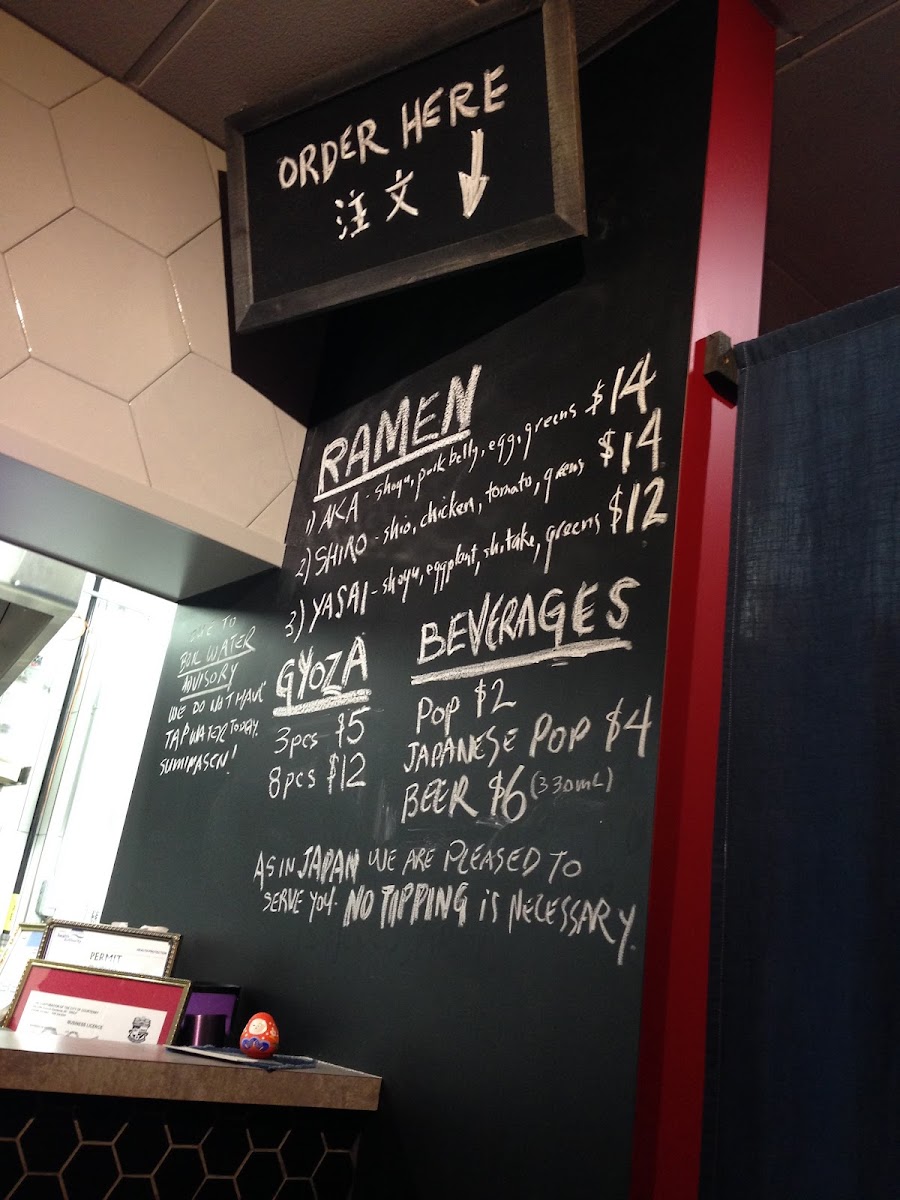 ORDER HERE
注文
RAMEN
1) AKA - shoyu, pork belly, egg, greens $14
2) SHIRO - shio, chicken, tomato, greens $14
3) YASAI - shoyu, eggplant, shitake, greens $12
DUE TO
BOIL WATER
ADVISORY
WE DO NOT HAVE
TAP WATER TODAY.
SUMIMASEN!
GYOZA
3pcs $5
8pcs $12
BEVERAGES
POP $2
JAPANESE POP $4
BEER $6 (330mL)
AS IN JAPAN WE ARE PLEASED TO
SERVE YOU. NO TIPPING iS NECESSARY.
PERMIT
BUSINESS LICENCE